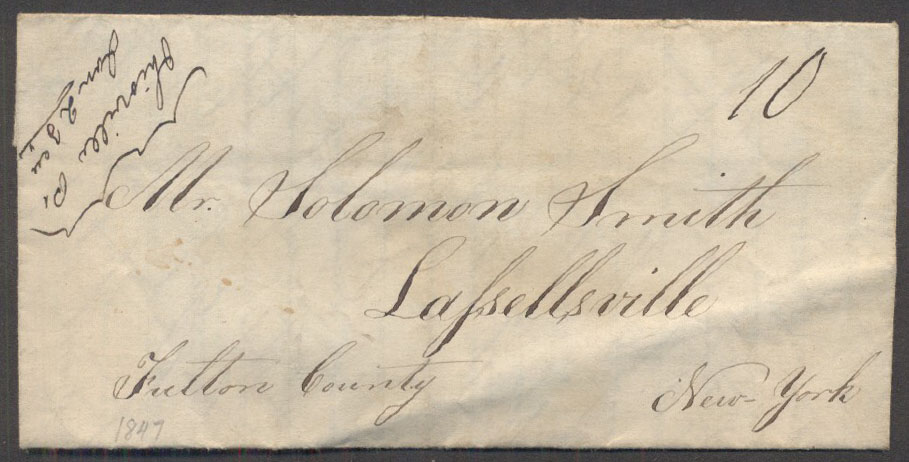 Ohioville Pa
Jan 23
10
Mr. Solomon Smith
Laſsellsville
Fulton County
New-York
1847